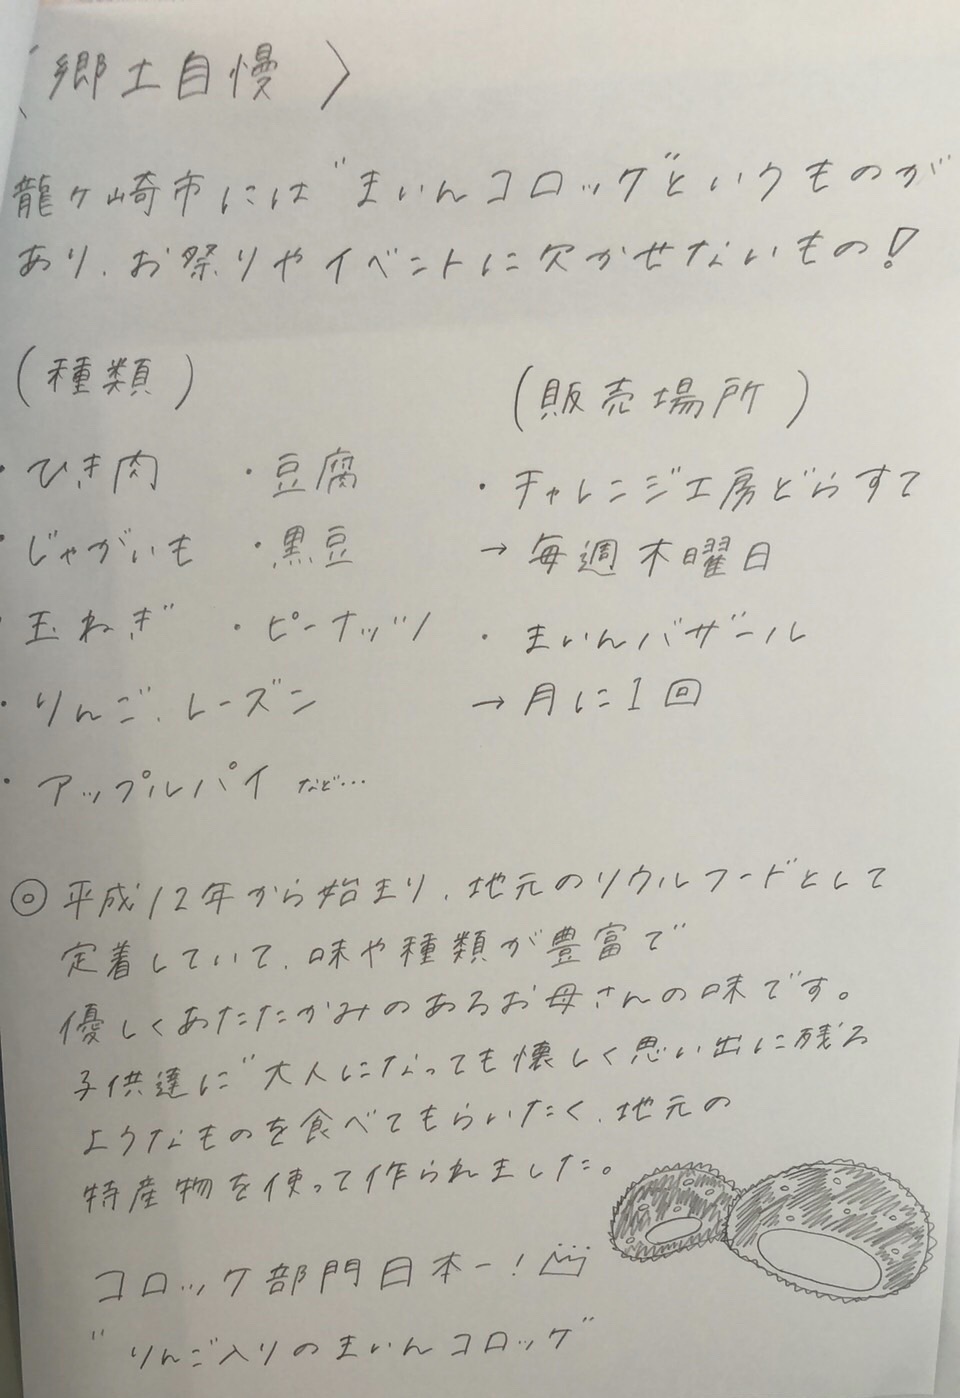 〈郷土自慢〉
龍ヶ崎市には"まいんコロッケ"というものが
あり、お祭りやイベントに欠かせないもの!
(種類)
・ひき肉 ・豆腐
・じゃがいも ・黒豆
・玉ねぎ ・ピーナッツ
・りんご、レーズン
・アップルパイ など…
(販売場所)
・チャレンジ工房どらすて
→毎週木曜日
・まいんバザール
→月に1回
◎平成12年から始まり、地元のソウルフードとして
定着していて、味や種類が豊富で
優しくあたたかみのあるお母さんの味です。
子供達に"大人になっても懐しく思い出に残る
ようなものを食べてもらいたく、地元の
特産物を使って作られました。
コロッケ部門日本一!
"りんご入りのまいんコロッケ"